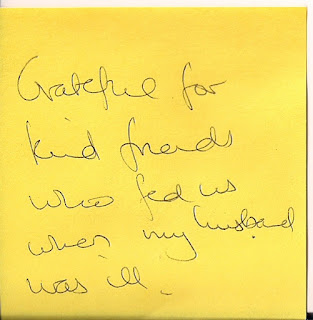 Grateful for
kind friends
who fed us
when my husband
was ill.